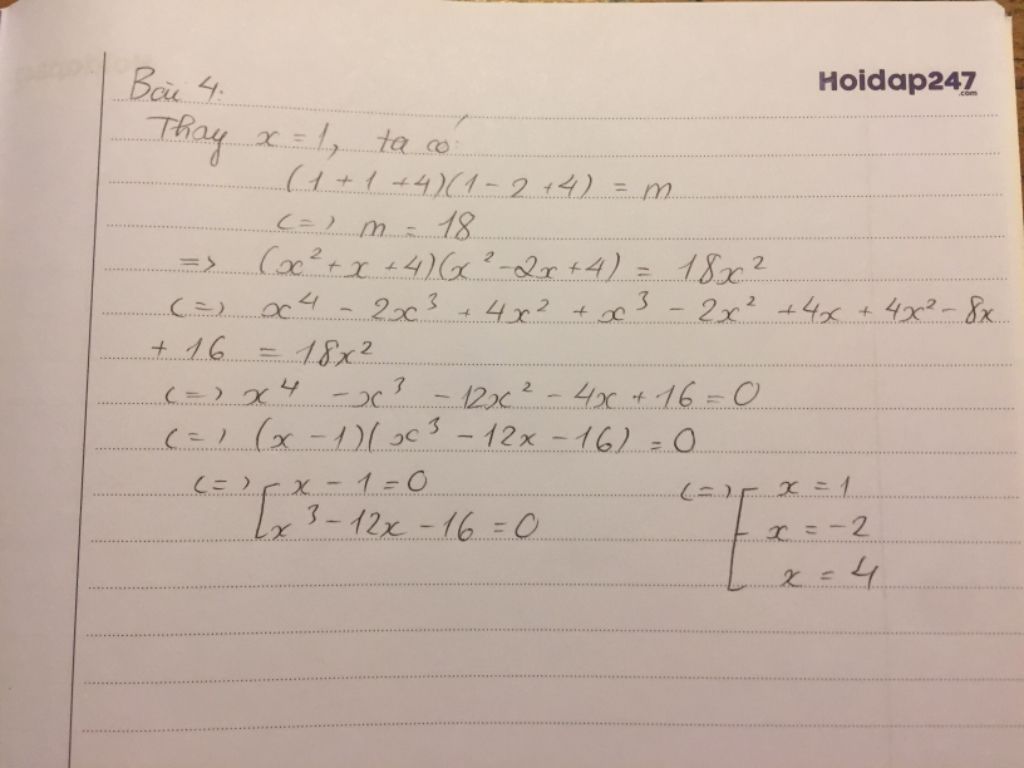 Hoidap247
.com
Bài 4:
Thay x = 1, ta có:
(1 + 1 + 4)(1 - 2 + 4) = m
(=) m = 18
=> (x² + x + 4)(x² - 2x + 4) = 18x²
(=) x⁴ - 2x³ + 4x² + x³ - 2x² + 4x + 4x² - 8x
+ 16 = 18x²
(=) x⁴ - x³ - 12x² - 4x + 16 = 0
(=) (x - 1)(x³ - 12x - 16) = 0
(=) [ x - 1 = 0 (=) [ x = 1
x³ - 12x - 16 = 0 x = -2
x = 4